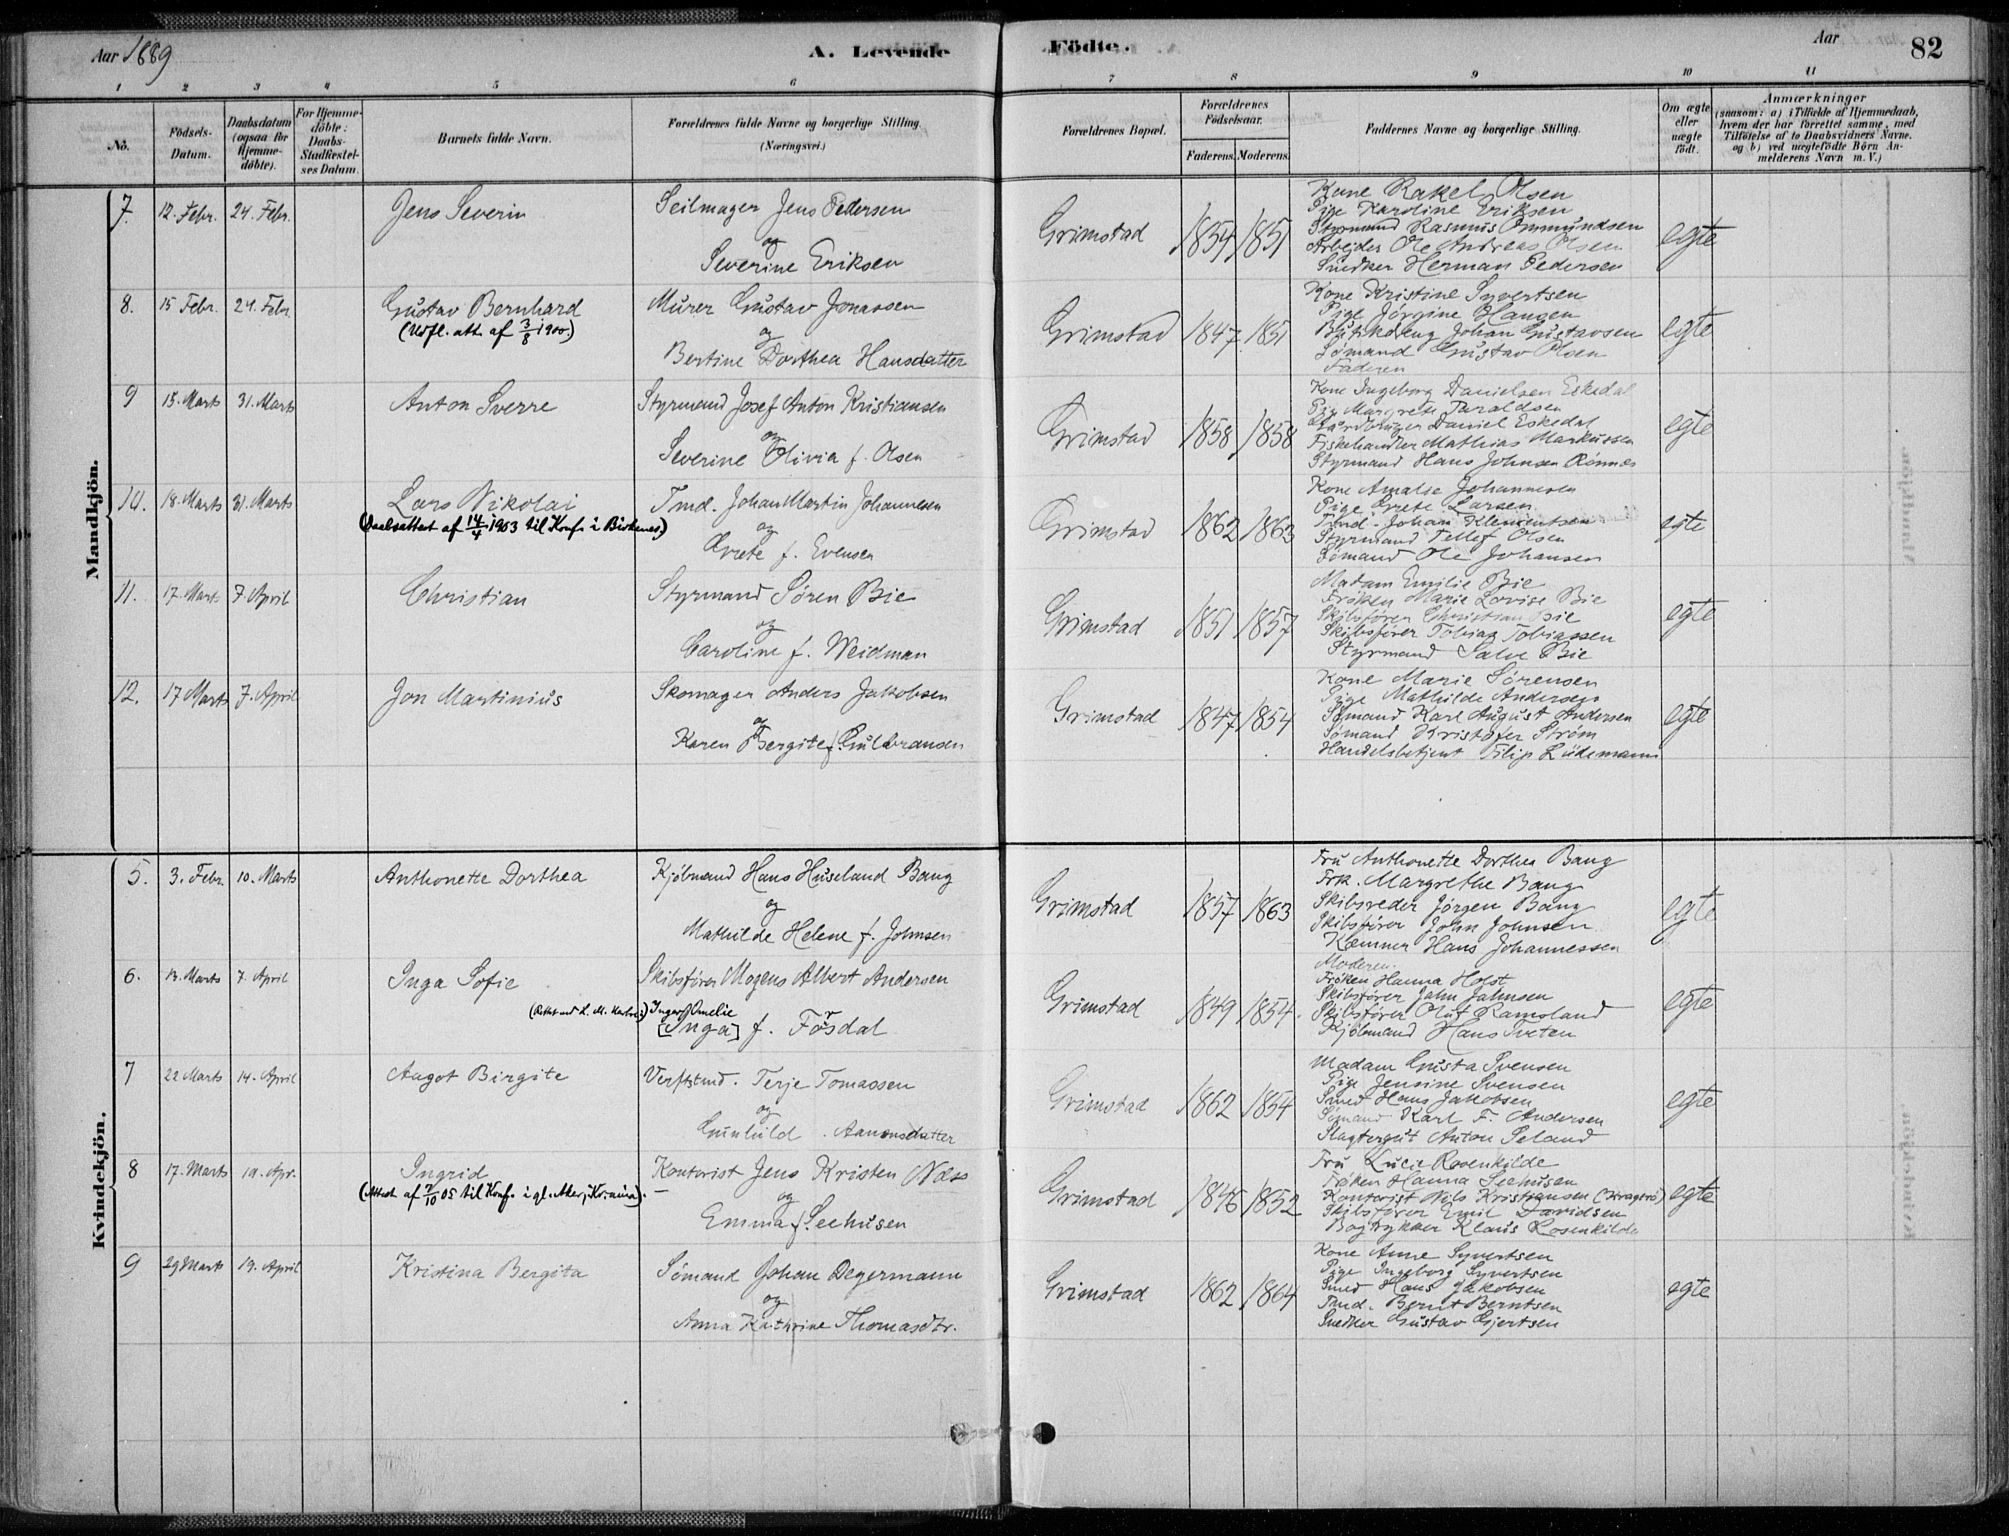 Aar 1889
A. Levende Födte.
Aar
82
1 2 3 4 5 6 7 8 9 10 11
No.
Födsels-Datum.
Daabsdatum (ogsaa for Hjemmedöbte).
For Hjemmedöbte: Daabs-Stadfæstelses Datum.
Barnets fulde Navn.
Forældrenes fulde Navne og borgerlige Stilling. (Næringsvei.)
Forældrenes Bopæl.
Forældrenes Födselsaar.
Faderens. Moderens.
Faddernes Navne og borgerlige Stilling.
Om ægte eller uægte födt.
Anmærkninger
(saasom: a) i Tilfælde af Hjemmedaab, hvem der har forrettet samme, med Tilföielse af to Daabsvidners Navne. og b) ved uægtefödte Börn Anmelderens Navn m. V.)
Mandkjön.
7. 12. Febr. 24. Febr. Jens Severin
Seilmager Jens Pedersen
og
Severine Eriksen
Grimstad 1854 1851
Kone Rakel Olsen
Pige Karoline Eriksen
Styrmand Rasmus Ommundsen
Arbeider Ole Andreas Olsen
Snedker Herman Pedersen
egte
8. 15 Febr. 24. Febr. Gustav Bernhard
(Udfl. att. af 3/8 1900.)
Murer Gustav Jonassen
og
Bertine Dorthea Hansdatter
Grimstad 1847 1851
Kone Kristine Syvertsen
Pige Jørgine Haugen
Butikdreng Johan Gustavsen
Sømand Gustav Olsen
Faderen
egte
9 15. Marts 31. Marts Anton Sverre
Styrmand Josef Anton Kristiansen
og
Severine Olivia f. Olsen
Grimstad 1858 1858
Kone Ingeborg Danielsen Eskedal
Pige Margrete Taraldsen
Gaardbruger Daniel Eskedal
Fiskehandler Mathias Markussen
Styrmand Hans Johnsen Rønnes
egte
10. 18. Marts 31. Marts Lars Nikolai
(Daabsattest af 14/4 1903 til Konf. i Birkenes)
Tmd. Johan Martin Johannesen
og
Grete f. Evensen
Grimstad 1862 1863
Kone Amalie Johannesen
Pige Grete Larsen
Tmd. Johan Klementsen
Styrmand Tellef Olsen
Sømand Ole Johansen
egte
11. 17. Mart. 7. April Christian
Styrmand Søren Bie
og
Caroline f. Weidman
Grimstad 1851 1857
Madam Emilie Bie
Frøken Marie Lovise Bie
Skibsfører Christian Bie
Skibsfører Tobias Tobiassen
Styrmand Salve Bie
egte
12. 17 Marts 7. April Jon Martinius
Skomager Anders Jakobsen
og
Karen Bergite f. Gulbransen
Grimstad 1847 1854
Kone Marie Sørensen
Pige Mathilde Andersen
Sømand Karl August Andersen
Sømand Kristofer Strøm
Handelsbetjent Filip Lüdemann
egte
Kvindekjön.
5. 3. Febr. 10. Marts Anthonette Dorthea
Kjøbmand Hans Huseland Bang
og
Mathilde Helene f. Johnsen
Grimstad 1857 1863
Fru Anthonette Dorthea Bang
Frk. Margrethe Bang
Skibsreder Jørgen Bang
Skibsfører John Johnsen
Kæmner Hans Johannessen
egte
6. 13. Marts 7. April Inga Sofie
Skibsfører Mogens Albert Andersen
Inger Amelie
[Inga] f. Fosdal
Grimstad 1849 1854.
Moderen.
Frøken Hanna Holst
Skibsfører Jahn Jahnsen
Skibsfører Oluf Ramsland
Kjøbmand Hans Tveten
egte
7 22 Marts 14. April Aagot Birgite
Verftstmd. Terje Tomassen
og
Gunhild Aanonsdatter
Grimstad 1862 1854
Madam Gusta Svensen
Pige Jensine Svensen
Smed Hans Jakobsen
Sømand Karl F. Andersen
Slagtergut Anton Seland
egte
8 17. Marts 19. Apr. Ingrid
(Attest af 7/10 05 til Konf. i gl. Aker, Kr.ania).
Kontorist Jens Kristen Næss
og
Emma f. Seehusen
Grimstad 1846 1852
Fru Lucie Rosenkilde
Frøken Hanna Seehusen
Kontorist Nils Kristiansen (Kragerø)
Skibsfører Emil Davidsen
Bogtrykker Klaus Rosenkilde
egte
9 29 Marts 19. April Kristina Bergita
Sømand Johan Degermann
og
Anna Kathrine Thomasdtr.
Grimstad 1862 1864
Kone Anne Syvertsen
Pige Ingeborg Syvertsen
Smed Hans Jakobsen
Tmd. Bernt Berntsen
Snedker Gustav Gjertsen
egte